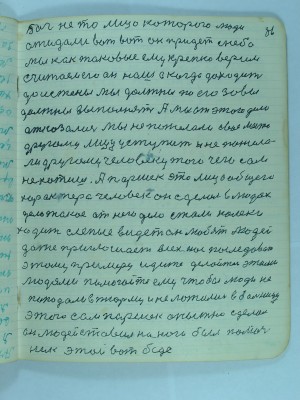 86
Бог не то лицо которого люди
ожидали вот вот он придет с неба
мы как таковые ему крепко верим
считаем его он наш а когда доходит
до истены мы должны по его зову
должны выполнять А мы от этого дела
отказались мы не пожелали свое место
другому лицу уступить и не пожела-
ли другому человеку того чего сам
не хотиш. А паршек это лицо общего
характера человек он сделал в людях
должное от него дело стали ноги
ходить слепые видеть он любят людей
даже приглосает всех нас последовать
этому примеру идите делайте этими
людями помогайте ему чтобы люди не
попадали в тюрму и не ложились в больницу
этого сам паршек опытно сделал
он людей ставил на ноги был помоч
ник этой вот беде